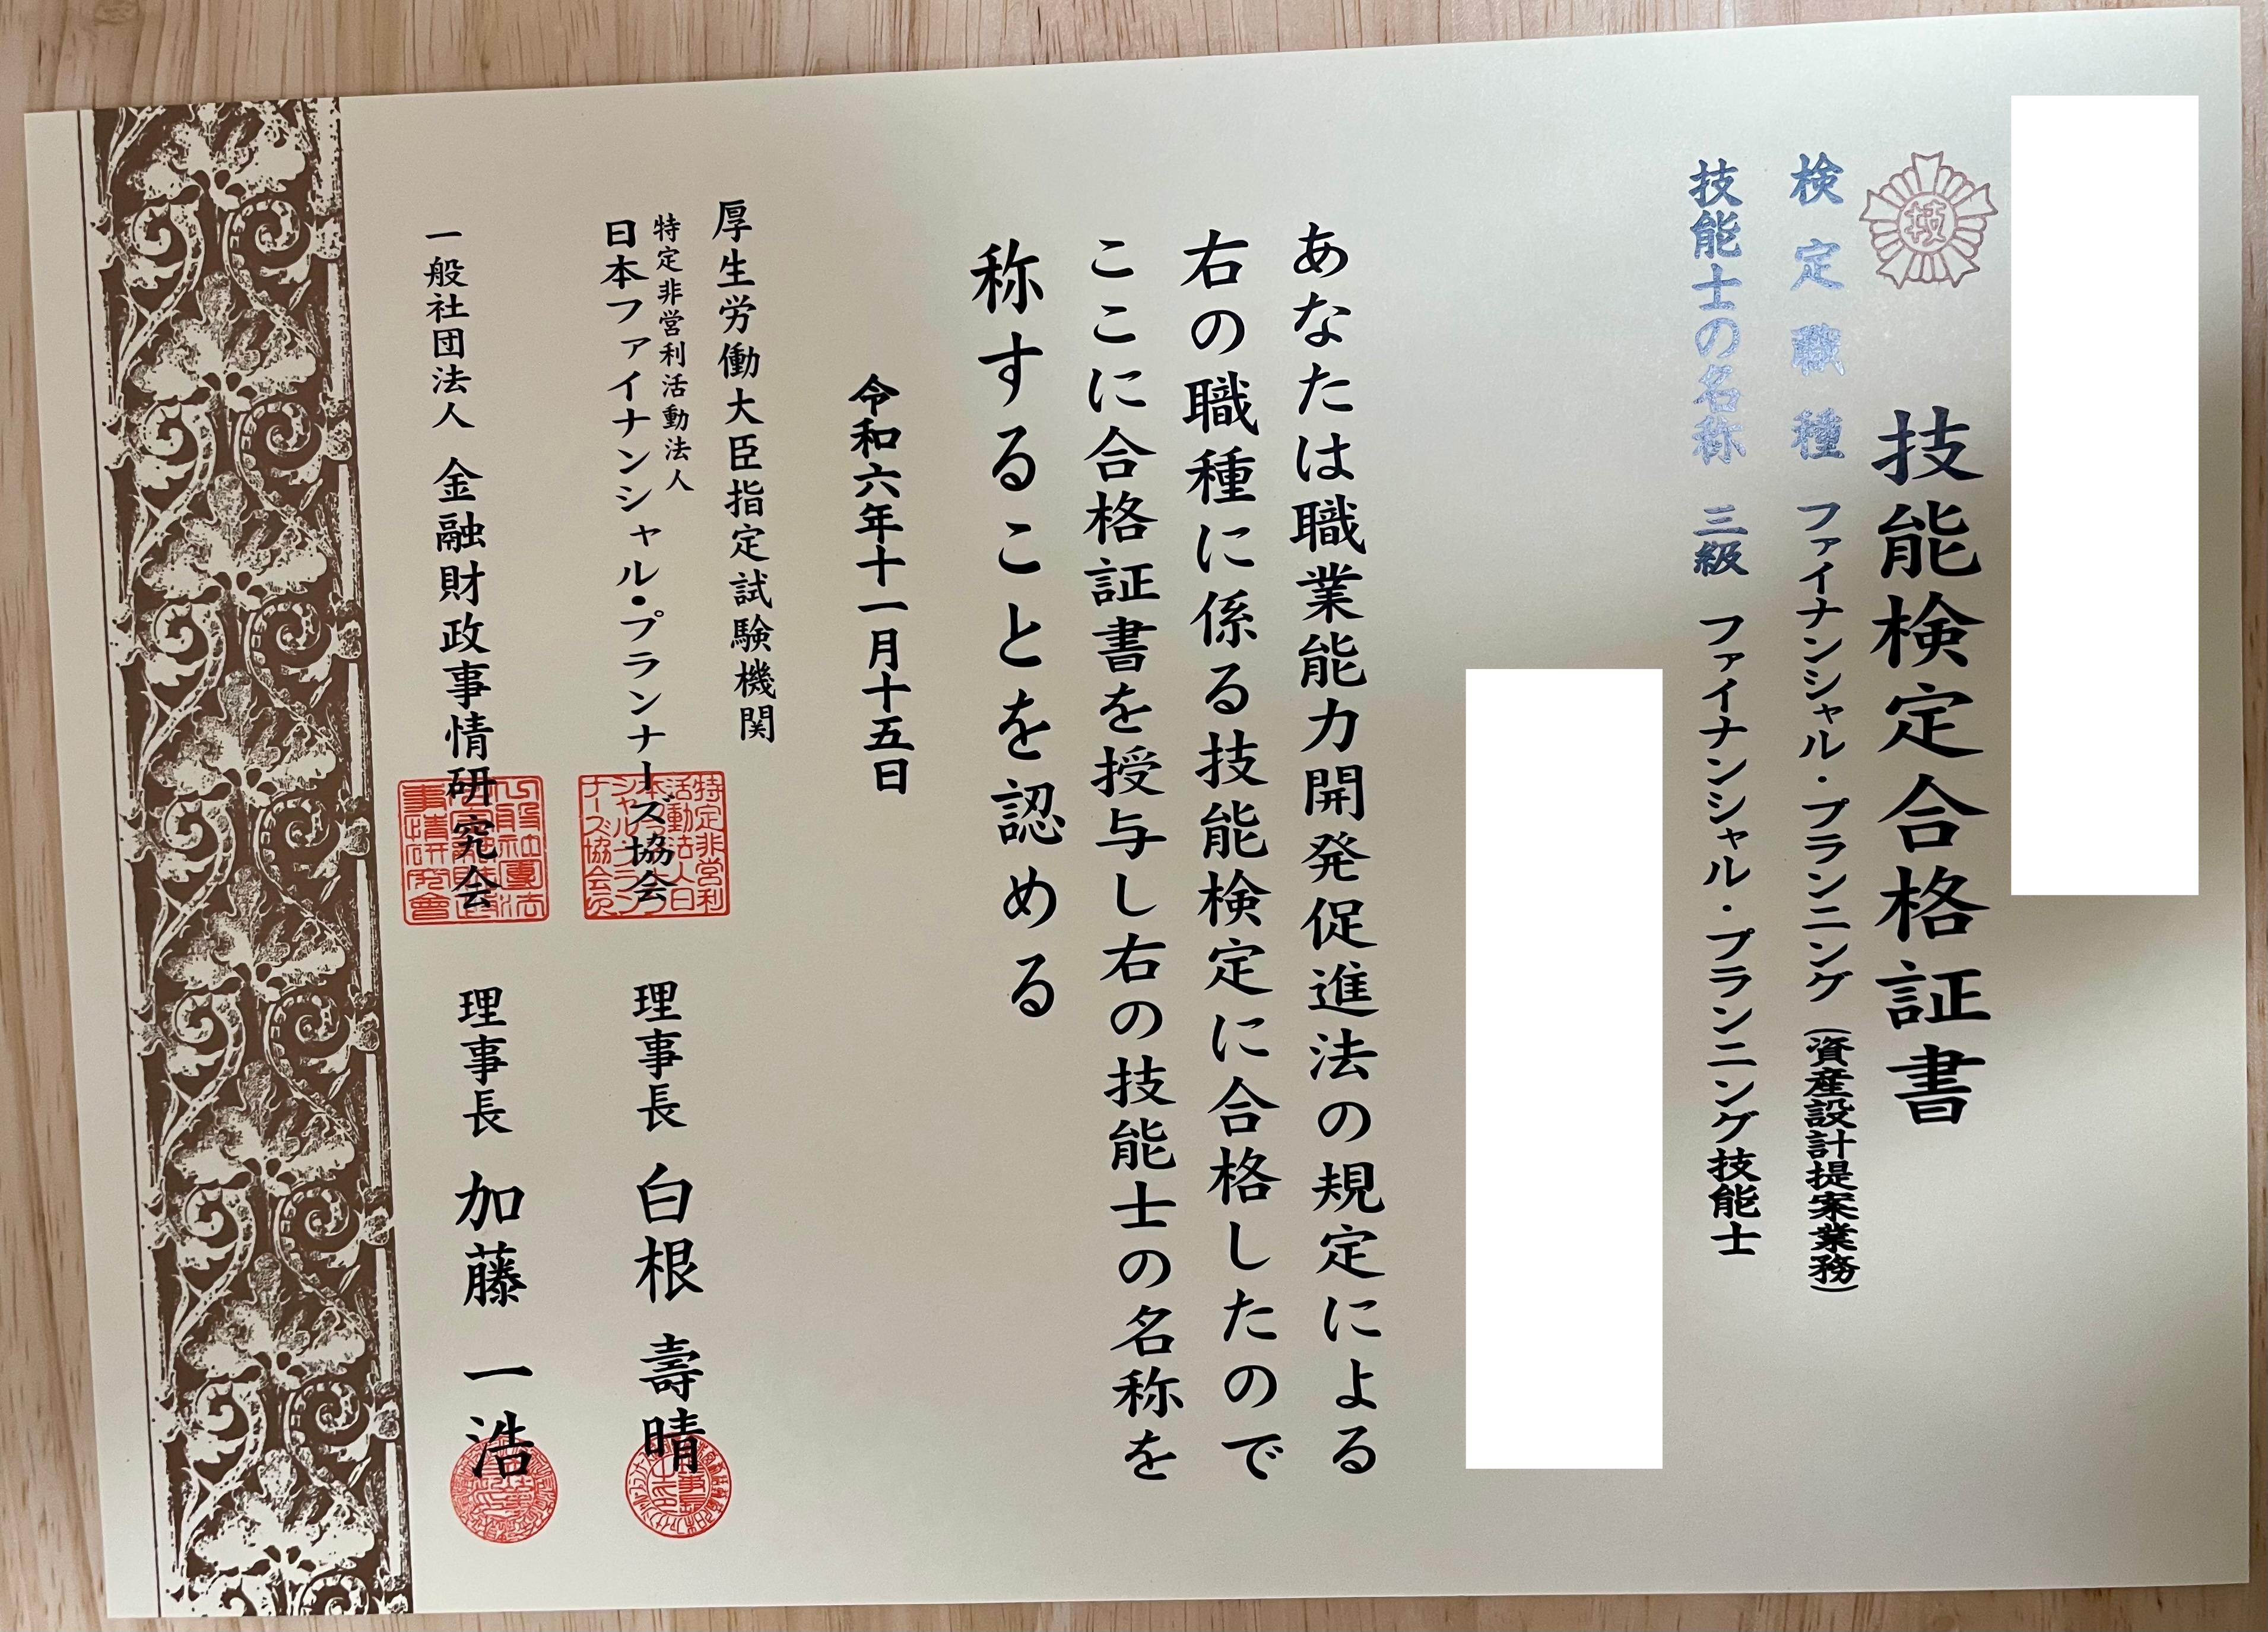 技
技能検定合格証書
検定職種 ファイナンシャル・プランニング(資産設計提案業務)
技能士の名称 三級 ファイナンシャル・プランニング技能士
あなたは職業能力開発促進法の規定による
右の職種に係る技能検定に合格したので
ここに合格証書を授与し右の技能士の名称を
称することを認める
令和六年十一月十五日
厚生労働大臣指定試験機関
特定非営利活動法人
日本ファイナンシャル・プランナーズ協会 理事長 白根 壽晴
一般社団法人 金融財政事情研究会 理事長 加藤 一浩